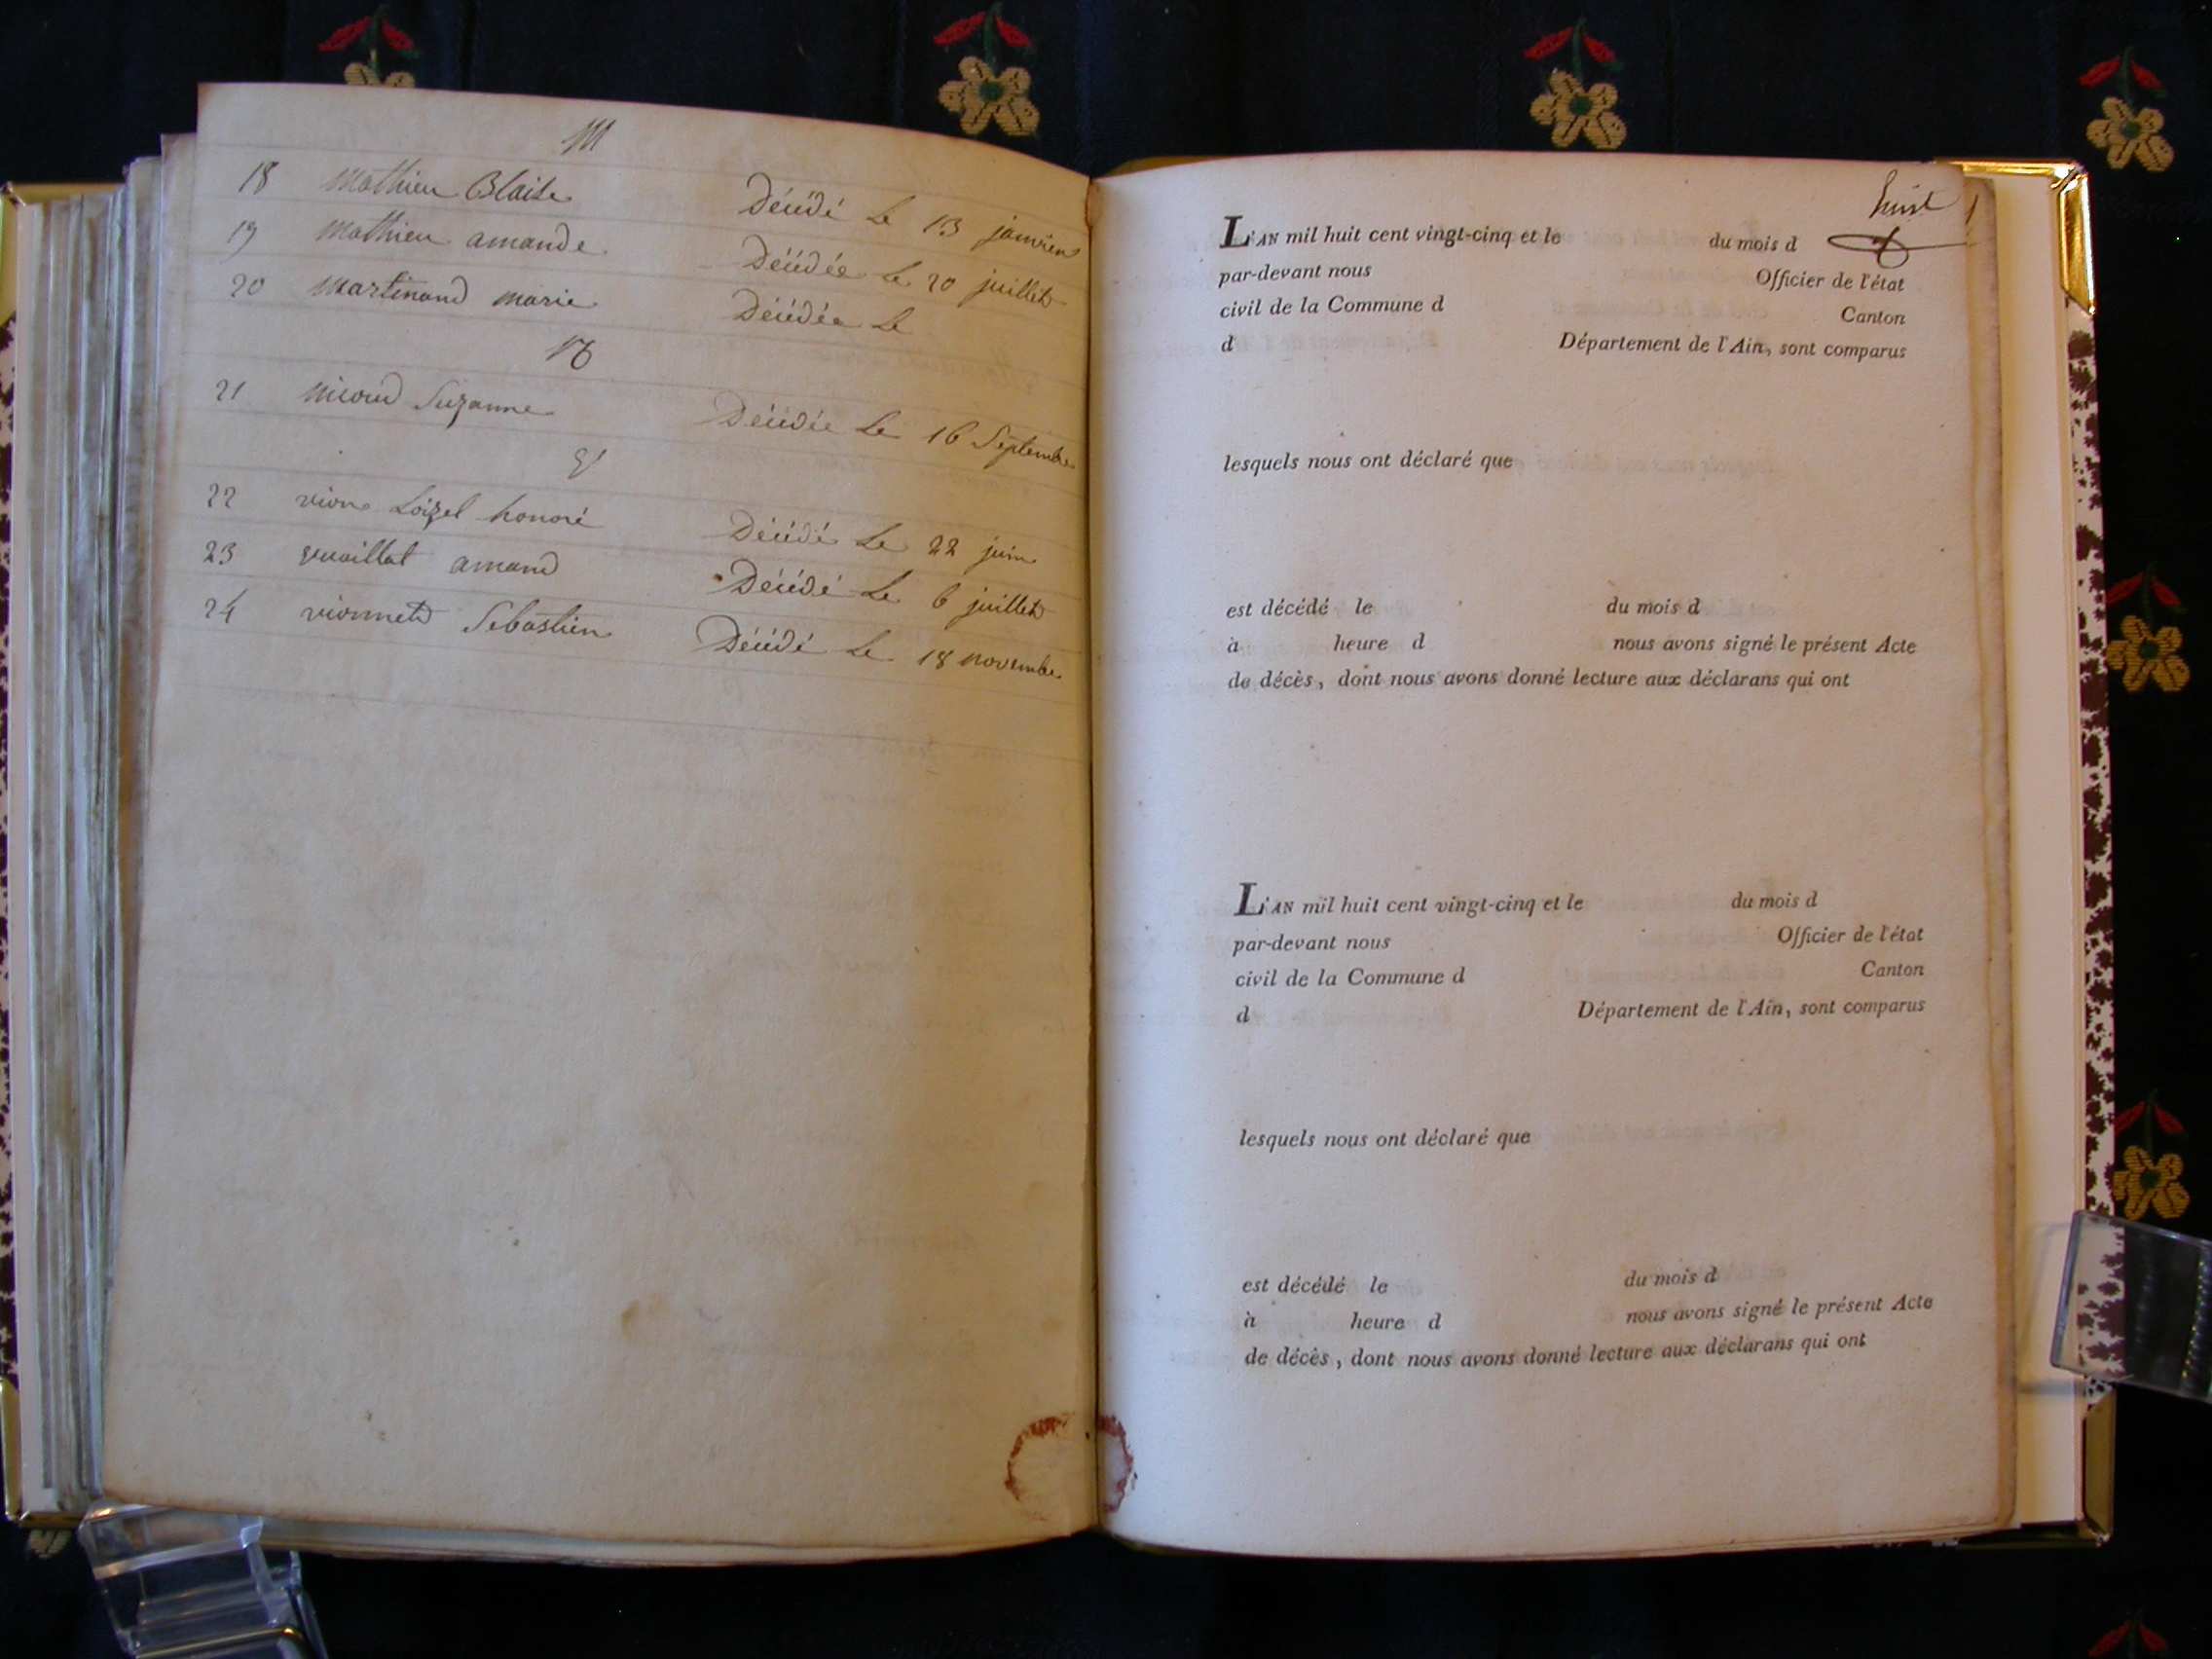 M
18 Mathieu Blaise Décédé Le 13 janvier
19 Mathieu amande Décédée Le 20 juillet
20 Martinand marie Décédée Le
N
21 nicoud Suzanne Décédée Le 16 Septembre
V
22 vion Loizel honoré Décédé Le 22 juin
23 vuaillat amand Décédé Le 6 juillet
24 vionnet Sebastien Décédé Le 18 novembre
huit
L'AN mil huit cent vingt-cinq et le du mois d
par-devant nous Officier de l'état
civil de la Commune d Canton
d Département de l'Ain, sont comparus
lesquels nous ont déclaré que
est décédé le du mois d
à heure d nous avons signé le présent Acte
de décès, dont nous avons donné lecture aux déclarans qui ont
L'AN mil huit cent vingt-cinq et le du mois d
par-devant nous Officier de l'état
civil de la Commune d Canton
d Département de l'Ain, sont comparus
lesquels nous ont déclaré que
est décédé le du mois d
à heure d nous avons signé le présent Acte
de décès, dont nous avons donné lecture aux déclarans qui ont